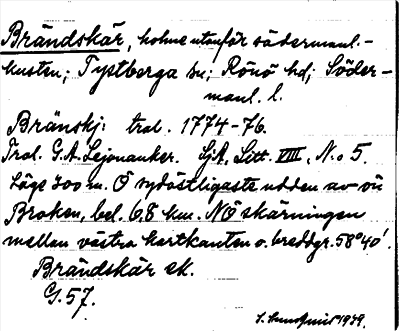 Brändskär, holme utanför södermanl.-
kusten; Tystberga sn; Rönö hd; Söder-
manl. l.
Bränskj: tral. 1774-76.
Tral. G.A. Lejonanker. SjA, Litt. VIII, N:o 5.
Läge 300 m. Ö sydöstligaste udden av ön
Broken, bel. 6,8 km. NÖ skärningen
mellan västra kartkanten o. breddgr. 58°40'.
Brändskär ek.
G. 57.
1939